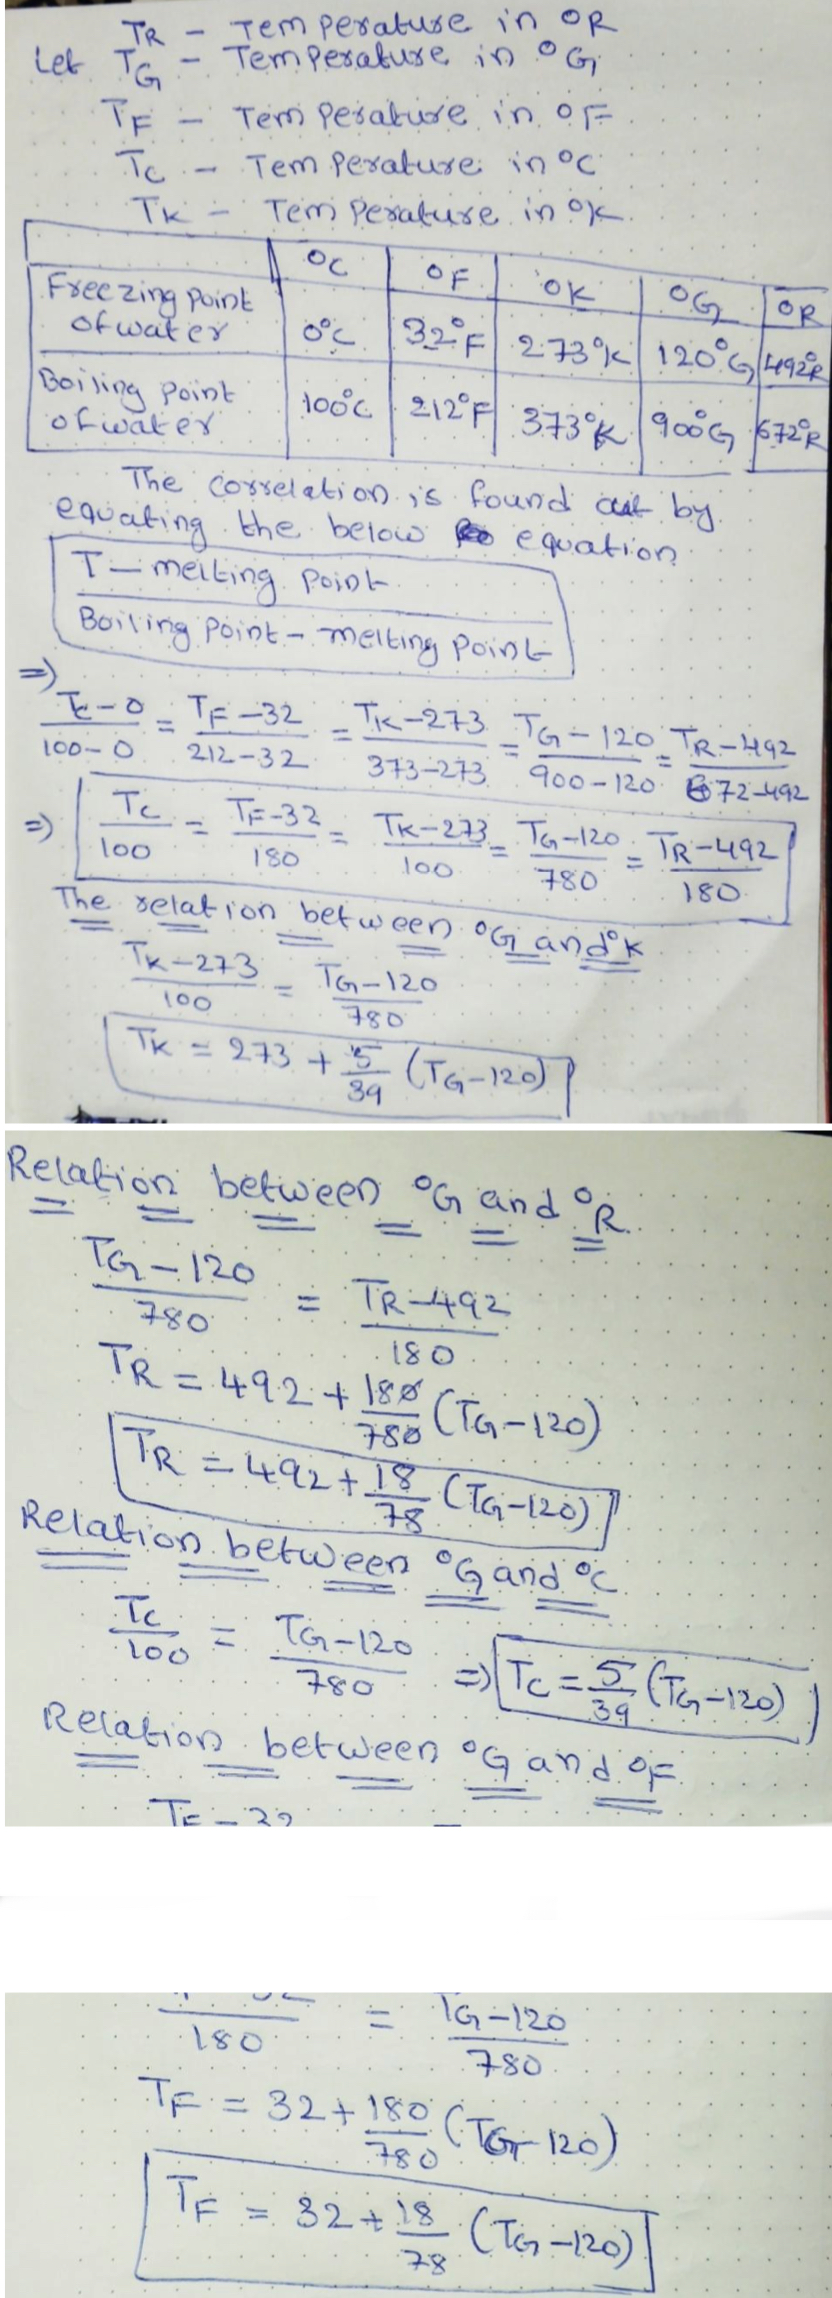 TR - Temperature in °R
Let TG - Temperature in °G
TF - Temperature in °F
TC - Temperature in °C
TK - Temperature in °K
°C °F °K °G °R
Freezing point of water 0°C 32°F 273°K 120°G 492°R
Boiling point of water 100°C 212°F 373°K 900°G 672°R
The correlation is found out by
equating the below equation
T - melting point
Boiling point - melting point
=>
TC-0/100-0 = TF-32/212-32 = TK-273/373-273 = TG-120/900-120 = TR-492/672-492
=> TC/100 = TF-32/180 = TK-273/100 = TG-120/780 = TR-492/180
The relation between °G and °K
TK-273/100 = TG-120/780
TK = 273 + 5/39 (TG-120)
Relation between °G and °R
TG-120/780 = TR-492/180
TR = 492 + 180/780 (TG-120)
TR = 492 + 18/78 (TG-120)
Relation between °G and °C
TC/100 = TG-120/780 => TC = 5/39 (TG-120)
Relation between °G and °F
TF-32
180 = TG-120/780
TF = 32 + 180/780 (TG-120)
TF = 32 + 18/78 (TG-120)